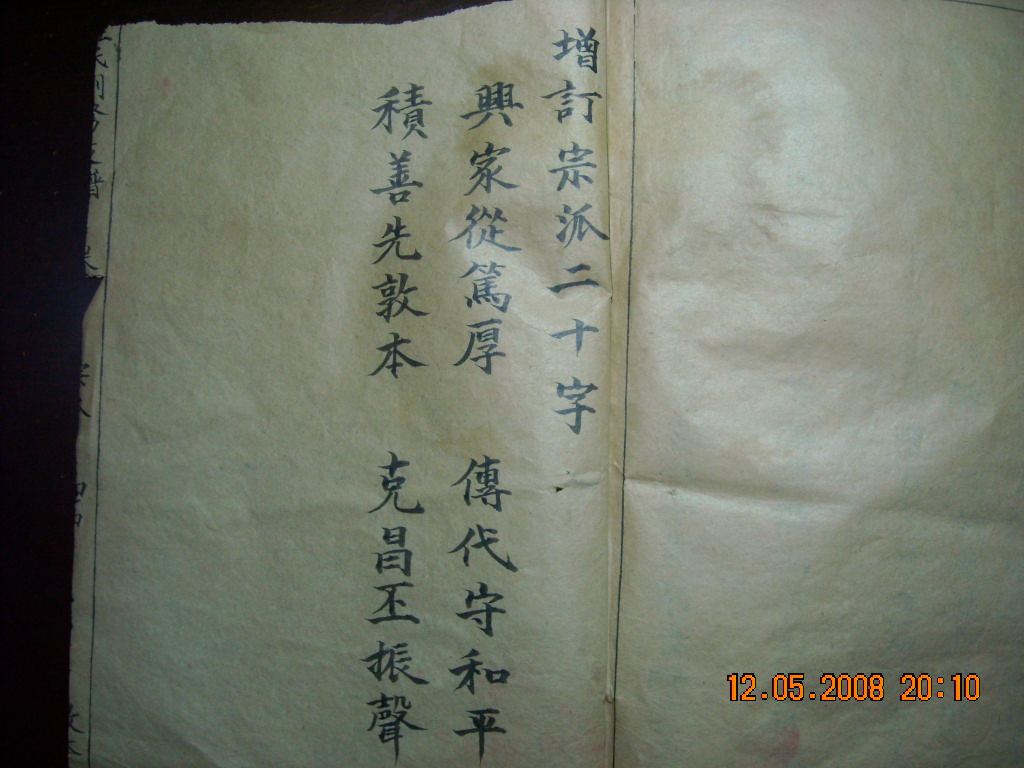 增訂宗派二十字
興家從篤厚 傳代守和平
積善先敦本 克昌丕振聲
12.05.2008 20:10